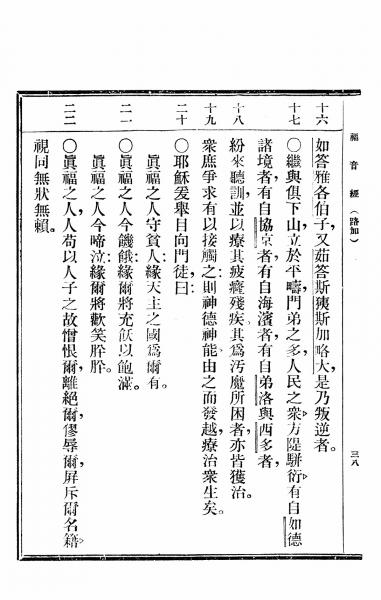 福音經（路加）
三八
十六 如答雅各伯子，又茹答斯猠斯加略大，是乃叛逆者。
十七 ○繼與俱下山，立於平疇，門弟之多，人民之衆，方隄駢衍，有自如德
諸境者，有自協京者，有自海濱者，有自弟洛與西多者，
十八 紛來聽訓，並以療其疲癃殘疾，其爲汚魔所困者，亦皆獲治。
十九 衆庶爭求有以接觸之，則神德神能，由之而發越，療治衆生矣。
二十 ○耶穌爰舉目向門徒曰：
眞福之人守貧人，緣天主之國爲爾有。
二一 ○眞福之人今饑餓，緣爾將充飫以飽滿。
眞福之人今啼泣，緣爾將歡笑胖胖。
二二 ○眞福之人，人苟以人子之故，憎恨爾，離絕爾，僇辱爾，屏斥爾名籍，
視同無狀無賴。